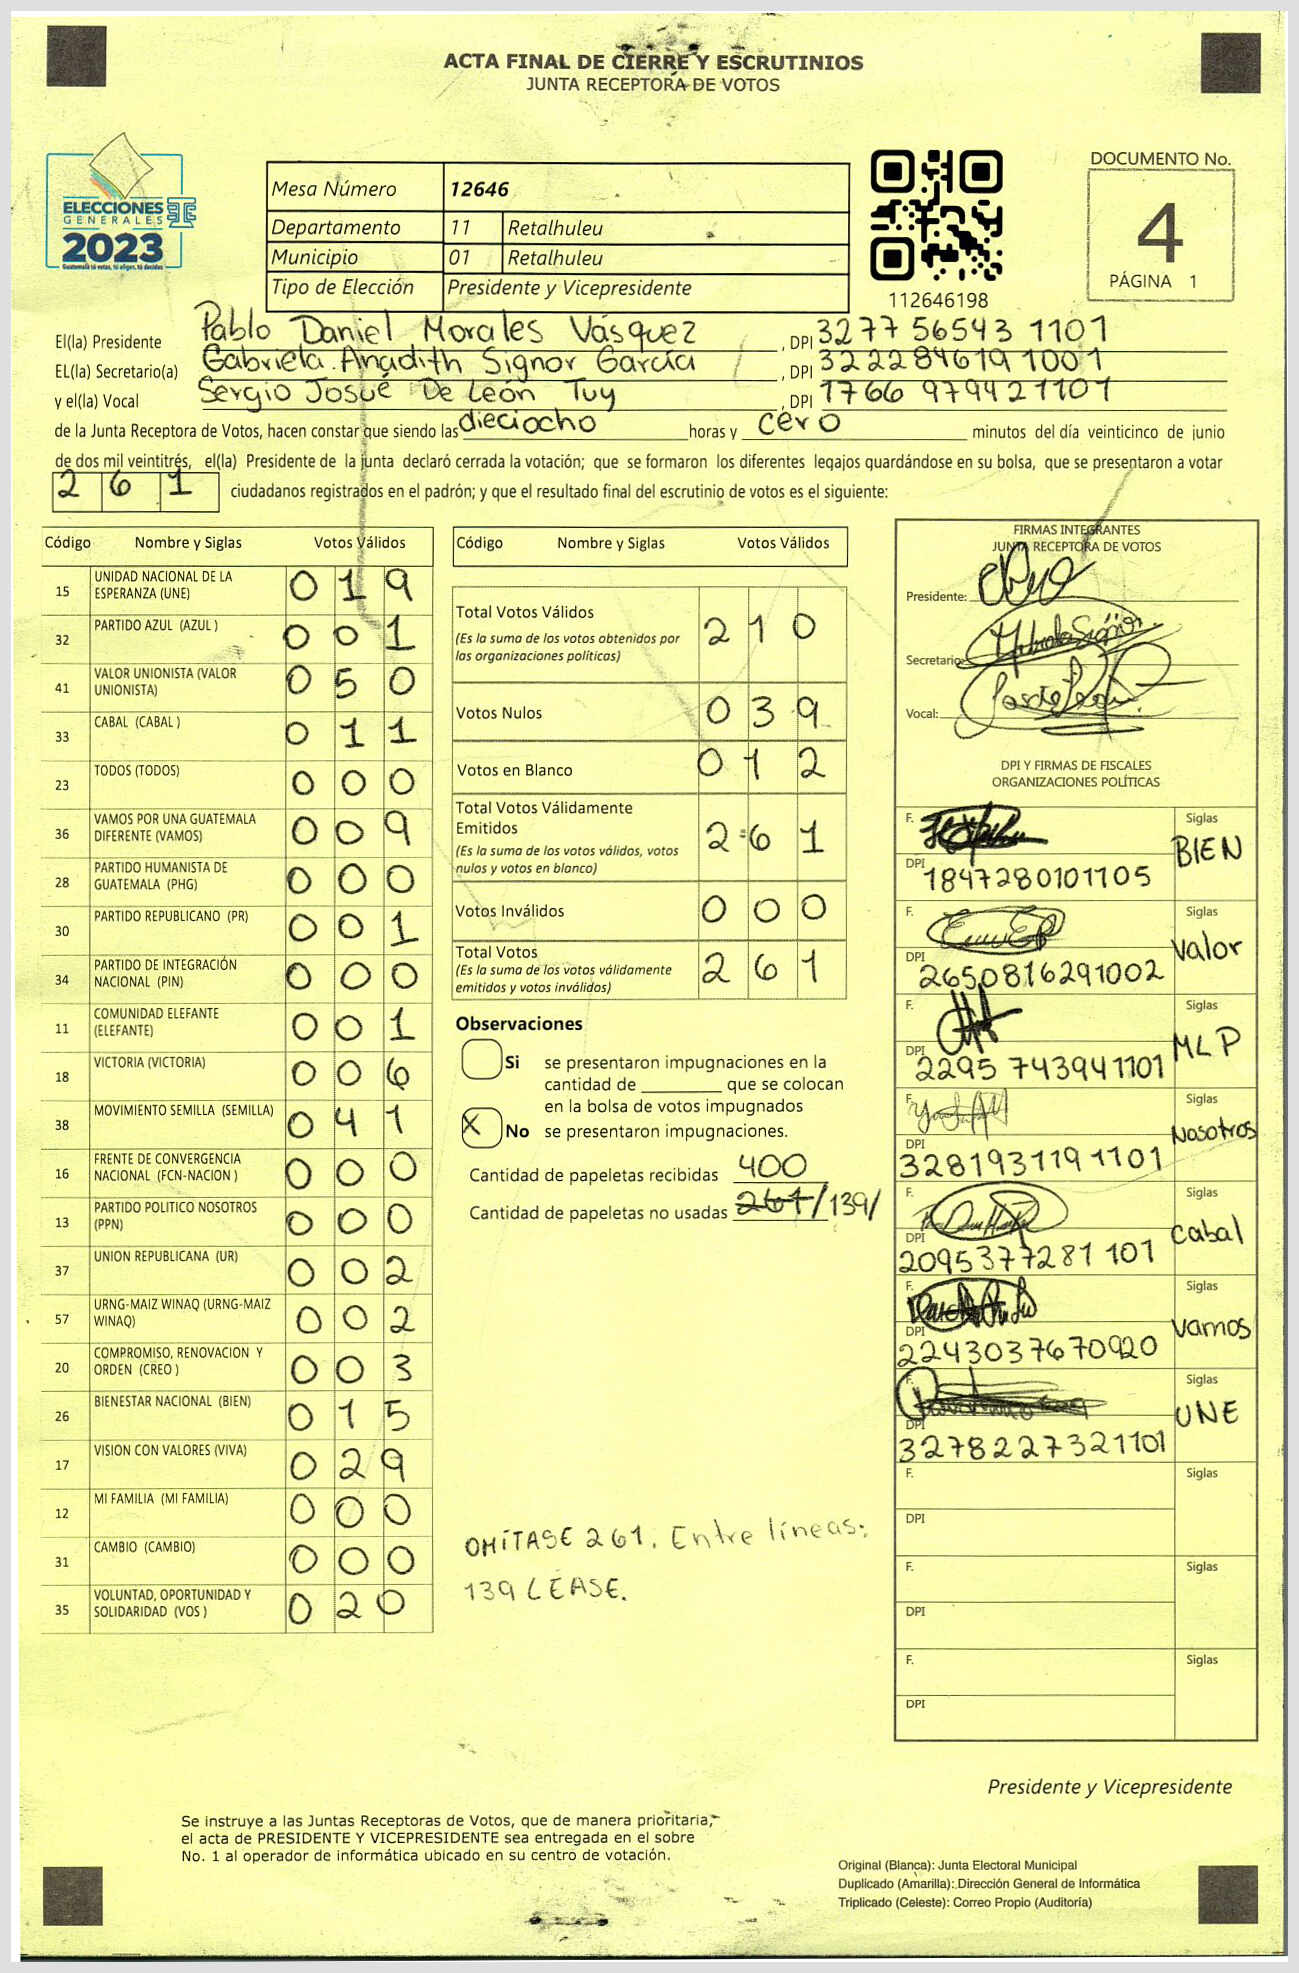 ACTA FINAL DE CIERRE Y ESCRUTINIOS
JUNTA RECEPTORA DE VOTOS
ELECCIONES
GENERALES
2023
Guatemala tú votas, tú eliges, tú decides
Mesa Número 12646
Departamento 11 Retalhuleu
Municipio 01 Retalhuleu
Tipo de Elección Presidente y Vicepresidente
112646198
DOCUMENTO No.
4
PÁGINA 1
El(la) Presidente Pablo Daniel Morales Vásquez , DPI 3277 56543 1101
EL(la) Secretario(a) Gabriela Anadith Signor García , DPI 322284619 1001
y el(la) Vocal Sergio Josué De León Tuy , DPI 1766 97942 1101
de la Junta Receptora de Votos, hacen constar que siendo las dieciocho horas y cero minutos del día veinticinco de junio
de dos mil veintitrés, el(la) Presidente de la junta declaró cerrada la votación; que se formaron los diferentes legajos guardándose en su bolsa, que se presentaron a votar
261 ciudadanos registrados en el padrón; y que el resultado final del escrutinio de votos es el siguiente:
Código Nombre y Siglas Votos Válidos
15 UNIDAD NACIONAL DE LA ESPERANZA (UNE) 019
32 PARTIDO AZUL (AZUL ) 001
41 VALOR UNIONISTA (VALOR UNIONISTA) 050
33 CABAL (CABAL ) 011
23 TODOS (TODOS) 000
36 VAMOS POR UNA GUATEMALA DIFERENTE (VAMOS) 009
28 PARTIDO HUMANISTA DE GUATEMALA (PHG) 000
30 PARTIDO REPUBLICANO (PR) 001
34 PARTIDO DE INTEGRACIÓN NACIONAL (PIN) 000
11 COMUNIDAD ELEFANTE (ELEFANTE) 001
18 VICTORIA (VICTORIA) 006
38 MOVIMIENTO SEMILLA (SEMILLA) 041
16 FRENTE DE CONVERGENCIA NACIONAL (FCN-NACION ) 000
13 PARTIDO POLITICO NOSOTROS (PPN) 000
37 UNION REPUBLICANA (UR) 002
57 URNG-MAIZ WINAQ (URNG-MAIZ WINAQ) 002
20 COMPROMISO, RENOVACION Y ORDEN (CREO ) 003
26 BIENESTAR NACIONAL (BIEN) 015
17 VISION CON VALORES (VIVA) 029
12 MI FAMILIA (MI FAMILIA) 000
31 CAMBIO (CAMBIO) 000
35 VOLUNTAD, OPORTUNIDAD Y SOLIDARIDAD (VOS ) 020
Código Nombre y Siglas Votos Válidos
Total Votos Válidos 210
(Es la suma de los votos obtenidos por
las organizaciones políticas)
Votos Nulos 039
Votos en Blanco 012
Total Votos Válidamente
Emitidos 261
(Es la suma de los votos válidos, votos
nulos y votos en blanco)
Votos Inválidos 000
Total Votos 261
(Es la suma de los votos válidamente
emitidos y votos inválidos)
Observaciones
Si se presentaron impugnaciones en la
cantidad de ________ que se colocan
en la bolsa de votos impugnados
X No se presentaron impugnaciones.
Cantidad de papeletas recibidas 400
Cantidad de papeletas no usadas 261/139/
OMÍTASE 261. Entre líneas:
139 LÉASE.
FIRMAS INTEGRANTES
JUNTA RECEPTORA DE VOTOS
Presidente:
Secretario:
Vocal:
DPI Y FIRMAS DE FISCALES
ORGANIZACIONES POLÍTICAS
F. Siglas BIEN
DPI 1847280101105
F. Siglas Valor
DPI 2650816291002
F. Siglas MLP
DPI 2295 743941101
F. Siglas Nosotros
DPI 3281931191101
F. Siglas Cabal
DPI 2095377281 101
F. Siglas Vamos
DPI 2243037670920
F. Siglas UNE
DPI 3278227321101
F. Siglas
DPI
F. Siglas
DPI
F. Siglas
DPI
Presidente y Vicepresidente
Se instruye a las Juntas Receptoras de Votos, que de manera prioritaria,
el acta de PRESIDENTE Y VICEPRESIDENTE sea entregada en el sobre
No. 1 al operador de informática ubicado en su centro de votación.
Original (Blanca): Junta Electoral Municipal
Duplicado (Amarilla): Dirección General de Informática
Triplicado (Celeste): Correo Propio (Auditoría)